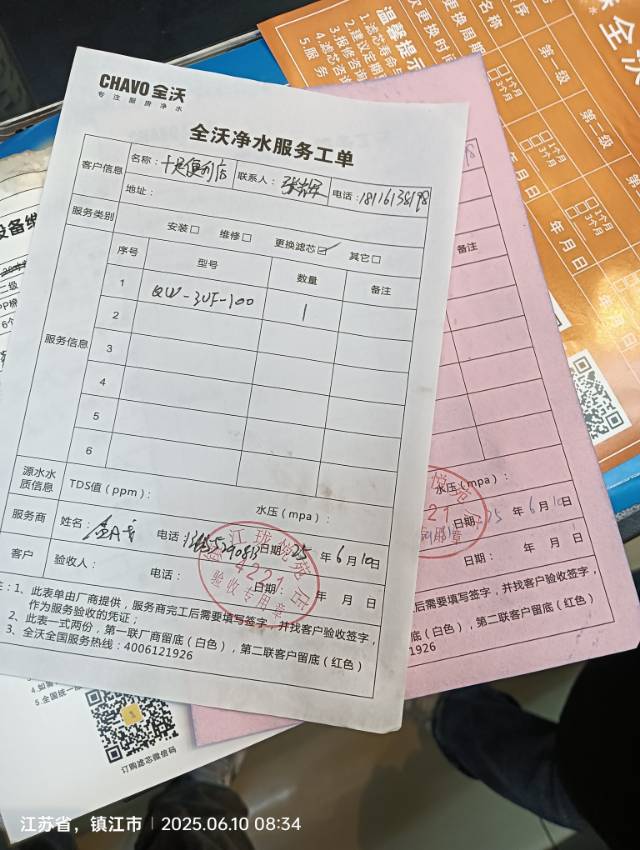 CHAVO 全沃
专注厨房净水
全沃净水服务工单
客户信息 名称：十足便利店 联系人： 电话：18116138198
地址：
服务类别 安装□ 维修□ 更换滤芯☑ 其它□
服务信息
序号 型号 数量 备注
1 QW-3UF-100 1
2
3
4
5
6
源水水质信息 TDS值（ppm）： 水压（mpa）：
服务商 姓名： 电话： 日期：25 年 6 月 10 日
客户 验收人： 电话： 日期： 年 月 日
注：1、此表单由厂商提供，服务商完工后需要填写签字，并找客户验收签字，
作为服务验收的凭证；
2、此表一式两份，第一联厂商留底（白色），第二联客户留底（红色）
3、全沃全国服务热线：4006121926
江珑悦
4221
验收专用章
备注
水压（mpa）：
25 年 6 月 10 日
日期： 年 月 日
后需要填写签字，并找客户验收签字，
商留底（白色），第二联客户留底（红色）
121926
温馨提示
1.滤芯寿命与
2.建议定期
3.报修咨询
4.滤芯咨
5.服务
更换时间
更换周期
名称
序
第一级
第二级
□1个月
□3个月
年 月 日
全沃
设备维
订购滤芯微信码
江苏省，镇江市 | 2025.06.10 08:34